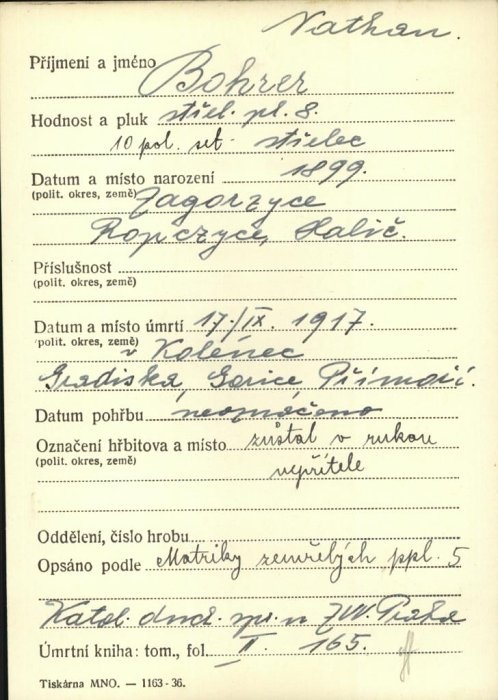 Nathan.
Příjmení a jméno Bohrer
Hodnost a pluk střel. pl. 8.
10 pol. set. střelec
Datum a místo narození 1899.
(polit. okres, země) Zagorzyce
Ropczyce, Halič.
Příslušnost
(polit. okres, země)
Datum a místo úmrtí 17./IX. 1917.
(polit. okres, země) v Kolénec
Gradiska, Gorice, Přímoří.
Datum pohřbu neoznačeno
Označení hřbitova a místo zůstal v rukou
(polit. okres, země) nepřítele
Oddělení, číslo hrobu
Opsáno podle Matriky zemřelých ppl. 5
Katol. duch. spr. ZVV. Praha
Úmrtní kniha: tom., fol. II. 165.
Tiskárna MNO. — 1163-36.